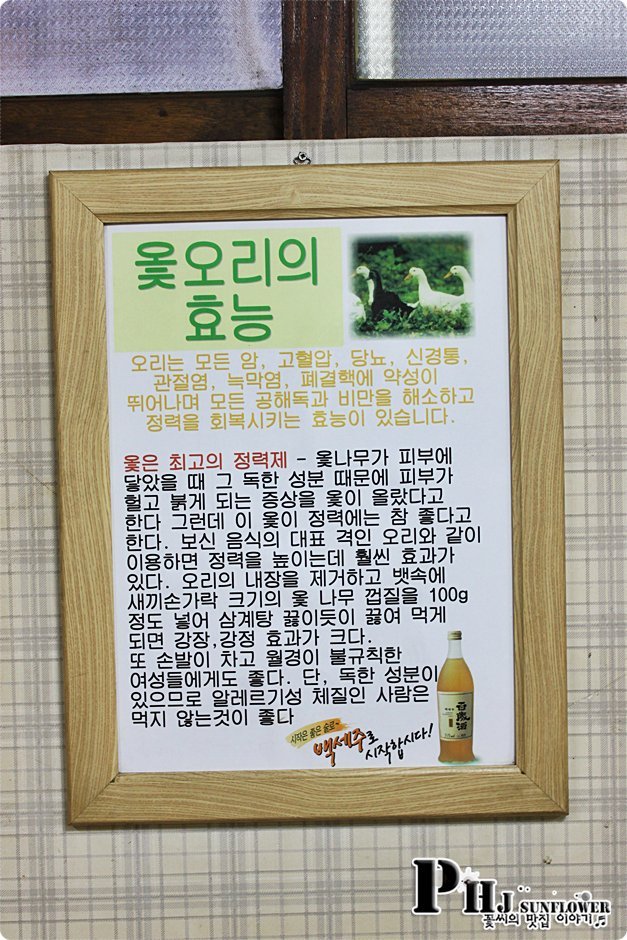 옻오리의
효능
오리는 모든 암, 고혈압, 당뇨, 신경통,
관절염, 늑막염, 폐결핵에 약성이
뛰어나며 모든 공해독과 비만을 해소하고
정력을 회복시키는 효능이 있습니다.
옻은 최고의 정력제 - 옻나무가 피부에
닿았을 때 그 독한 성분 때문에 피부가
헐고 붉게 되는 증상을 옻이 올랐다고
한다 그런데 이 옻이 정력에는 참 좋다고
한다. 보신 음식의 대표 격인 오리와 같이
이용하면 정력을 높이는데 훨씬 효과가
있다. 오리의 내장을 제거하고 뱃속에
새끼손가락 크기의 옻 나무 껍질을 100g
정도 넣어 삼계탕 끓이듯이 끓여 먹게
되면 강장,강정 효과가 크다.
또 손발이 차고 월경이 불규칙한
여성들에게도 좋다. 단, 독한 성분이
있으므로 알레르기성 체질인 사람은
먹지 않는것이 좋다
시작은 좋은 술로~
백세주로
시작합시다!
百歲酒
PHJ SUNFLOWER
꽃씨의 맛집 이야기♬